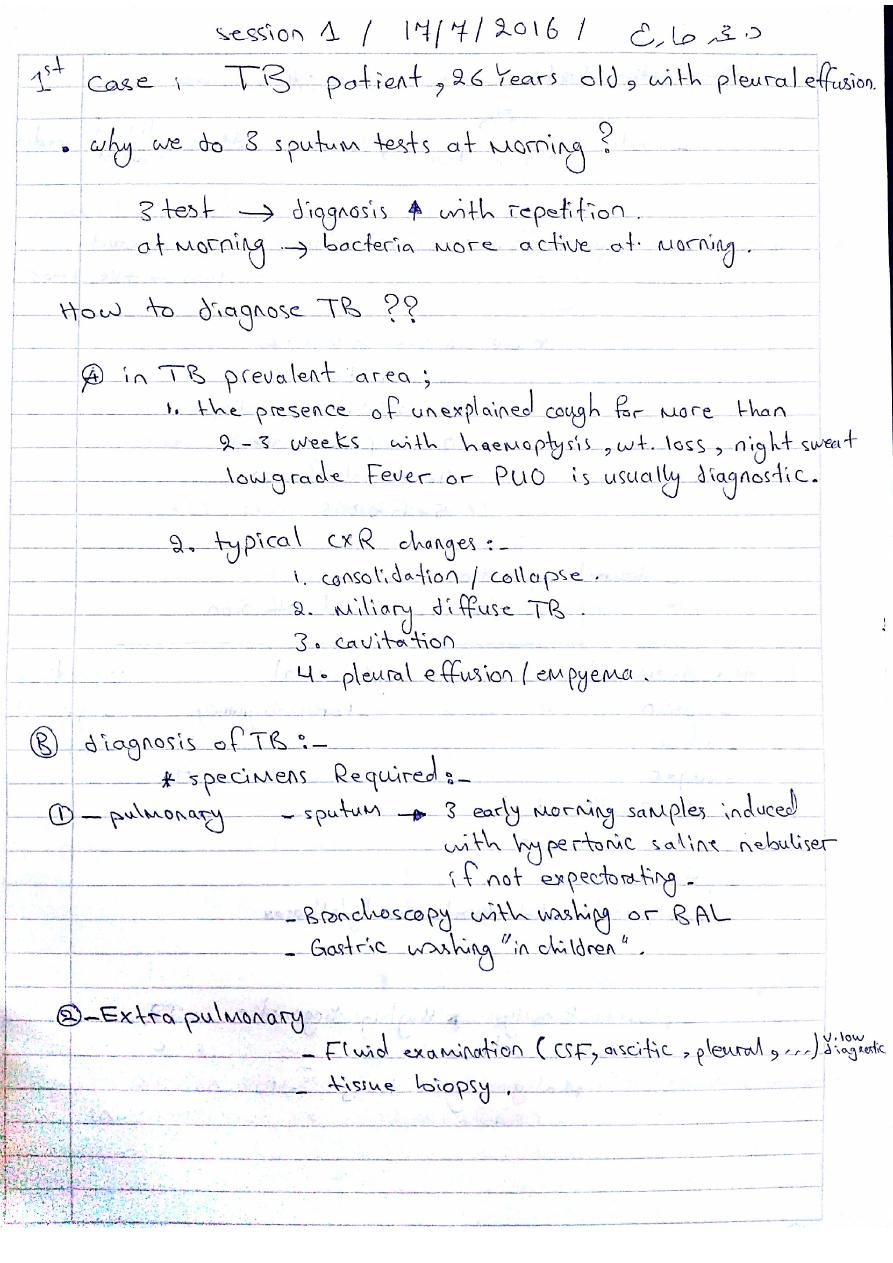 session 1 / 17/7/2016 /
1st case : TB patient, 26 Years old, with pleural effusion.
• why we do 3 sputum tests at morning?
3 test → diagnosis ↑ with repetition.
at morning → bacteria more active at morning.
How to diagnose TB ??
Ⓐ in TB prevalent area ;
1. the presence of unexplained cough for more than
2-3 weeks with haemoptysis, wt. loss, night sweat
lowgrade Fever or PUO is usually diagnostic.
2. typical CXR changes :-
1. consolidation / collapse.
2. miliary diffuse TB.
3. cavitation
4. pleural effusion / empyema.
Ⓑ diagnosis of TB :-
* specimens Required :-
① - pulmonary - sputum → 3 early morning samples induced
with hypertonic saline nebuliser
if not expectorating.
- Bronchoscopy with washing or BAL
- Gastric washing "in children".
② - Extra pulmonary
- Fluid examination (CSF, ascitic, pleural, ...) v.low diagnostic
- tissue biopsy.